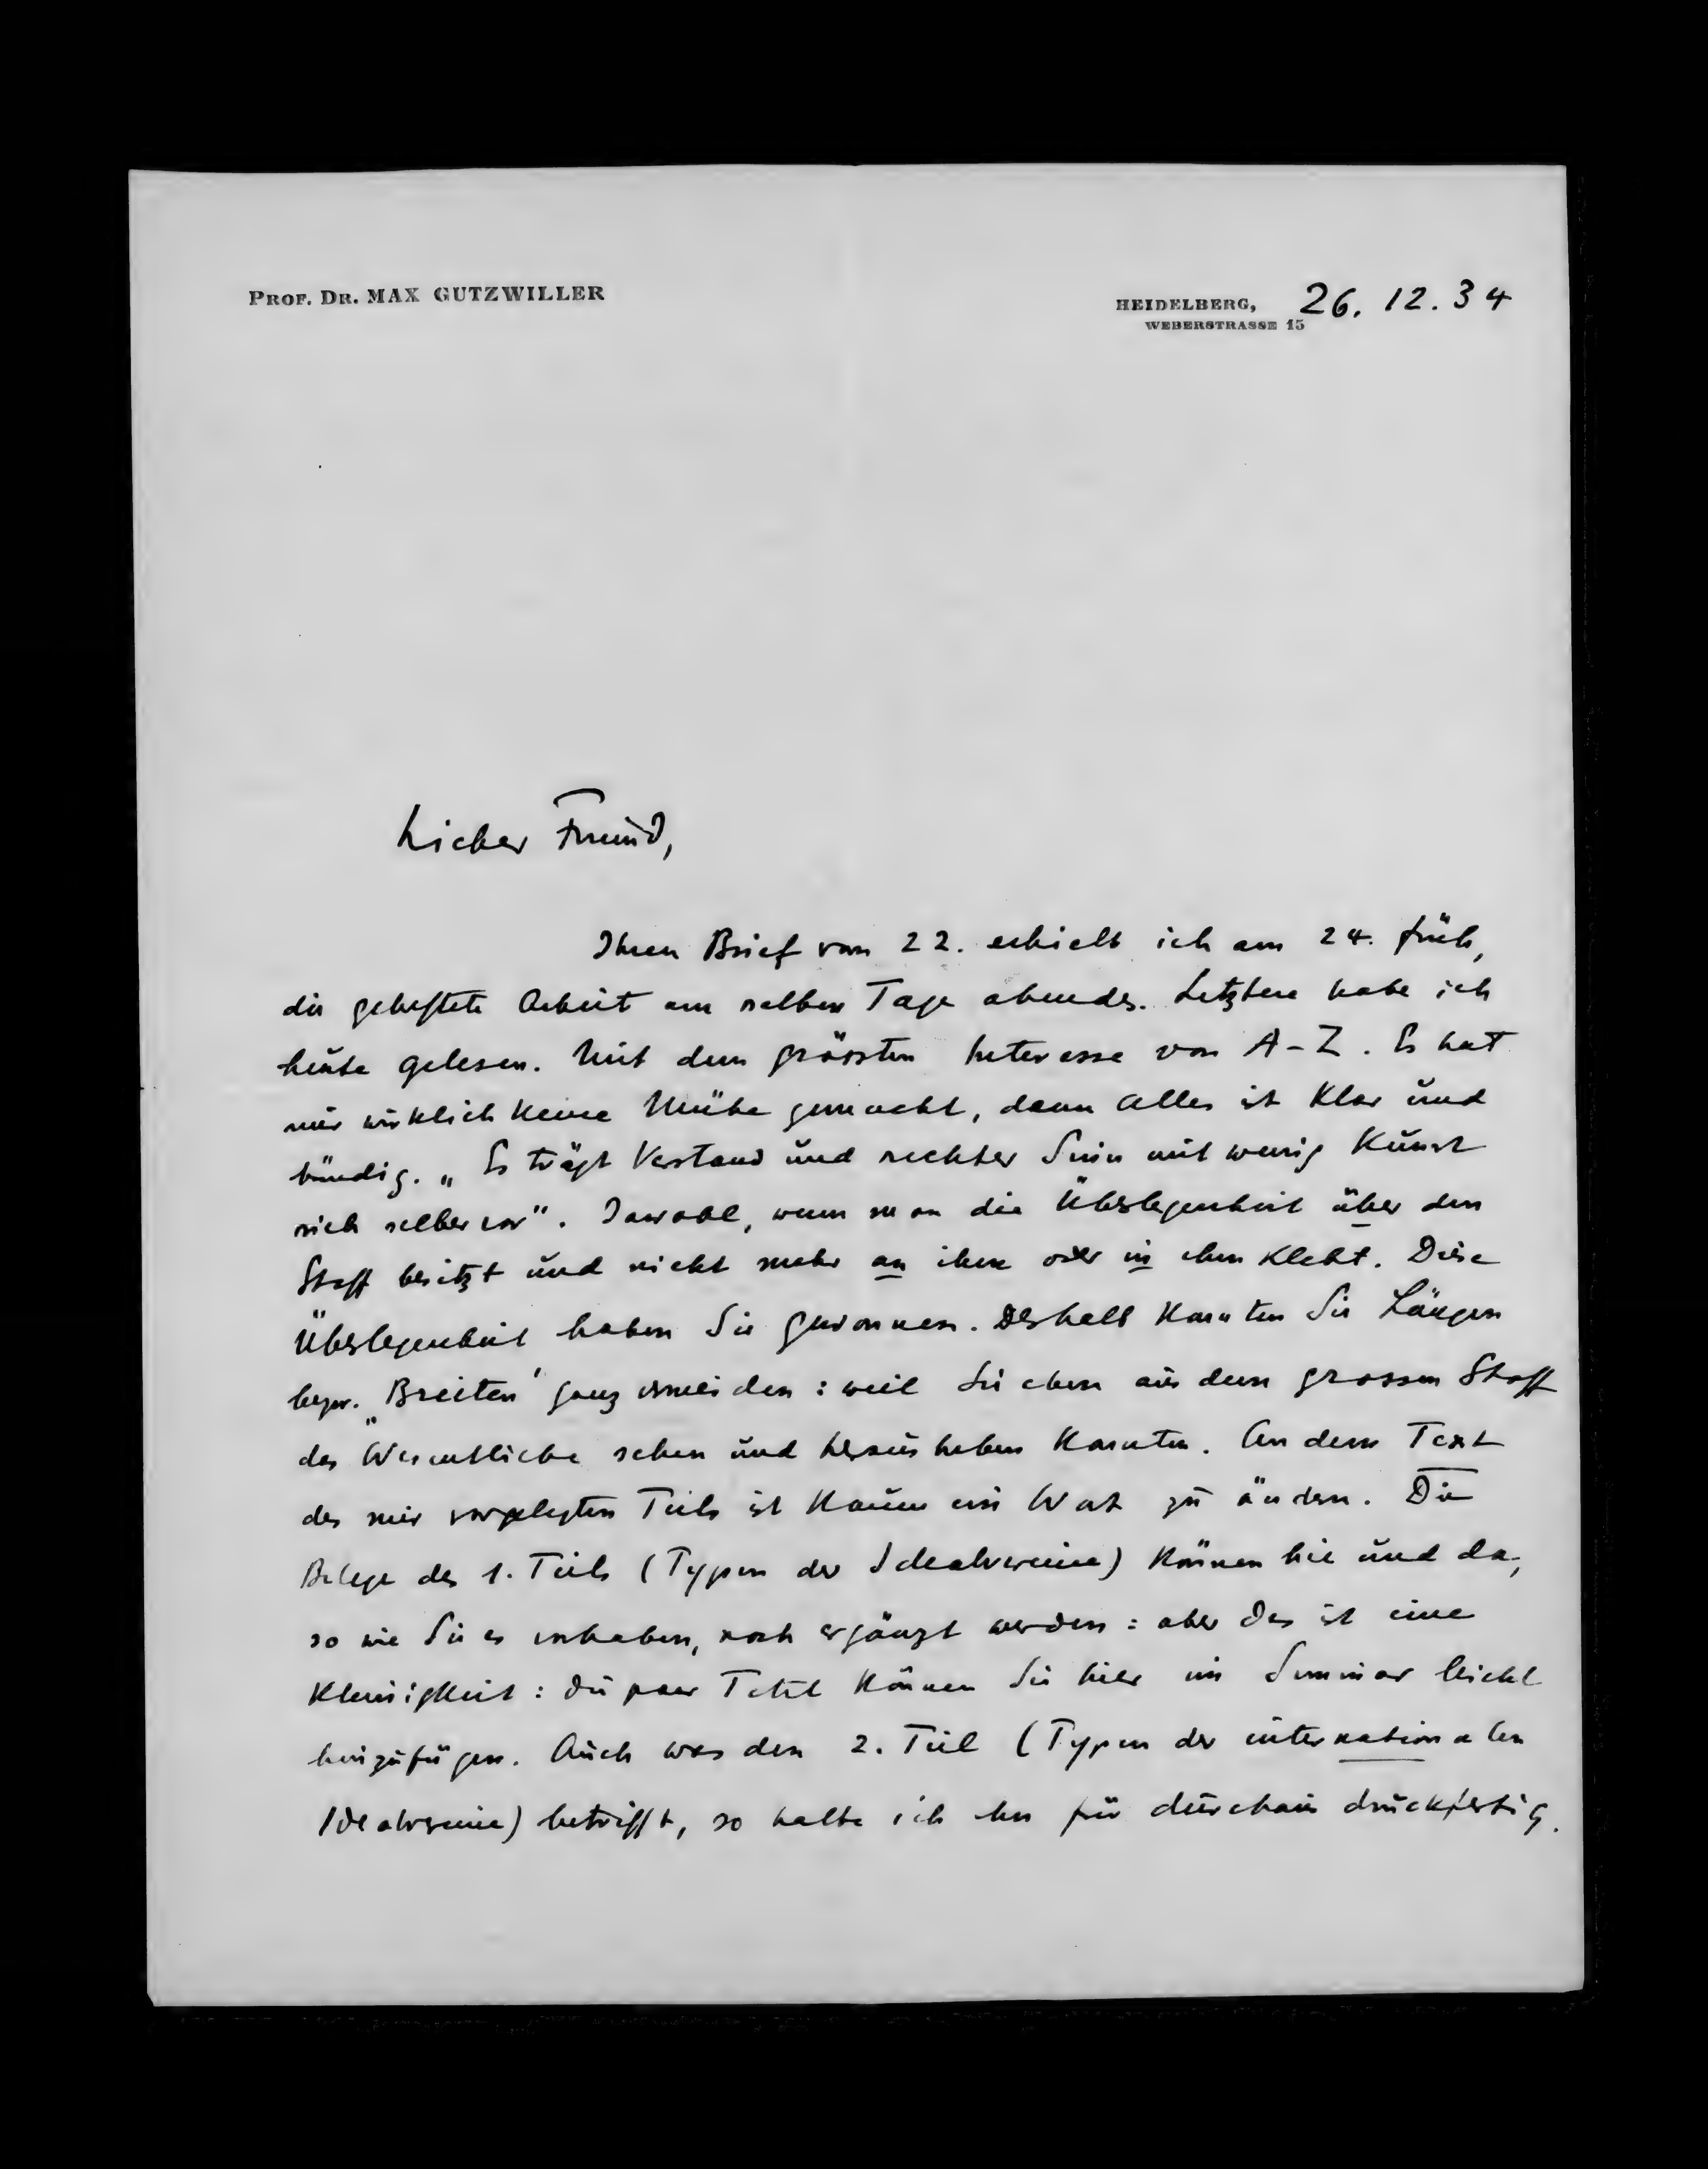 PROF. DR. MAX GUTZWILLER
HEIDELBERG, 26. 12. 34
WEBERSTRASSE 15
Lieber Freund,
Ihren Brief vom 22. erhielt ich am 24. früh,
die geheftete Arbeit am selben Tage abends. Letztere habe ich
heute gelesen. Mit dem grössten Interesse von A-Z. Es hat
mir wirklich keine Mühe gemacht, denn Alles ist klar und
bündig. „Es trägt Verstand und rechter Sinn mit wenig Kunst
sich selber vor". Jawohl, wenn man die Überlegenheit über den
Stoff besitzt und nicht mehr an ihm oder in ihm klebt. Diese
Überlegenheit haben Sie gewonnen. Deshalb konnten Sie Längen
bezw. „Breiten" ganz vermeiden: weil Sie eben aus dem grossen Stoff
das Wesentliche sehen und herausheben konnten. An dem Text
des mir vorgelegten Teils ist kaum ein Wort zu ändern. Die
Belege des 1. Teils (Typen der Idealvereine) können hie und da,
so wie Sie es vorhaben, noch ergänzt werden: aber das ist eine
Kleinigkeit: die paar Titel können Sie hier im Seminar leicht
hinzufügen. Auch was den 2. Teil (Typen der internationalen
Idealvereine) betrifft, so halte ich ihn für durchaus druckfertig.